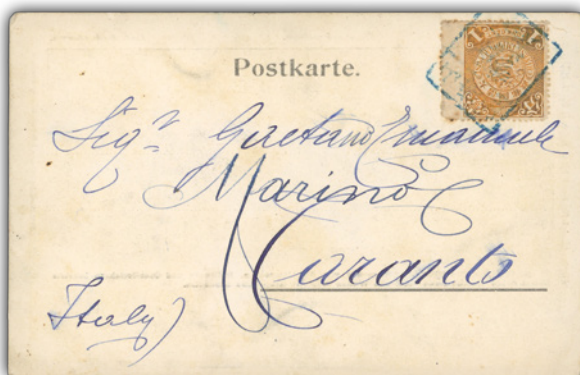 Postkarte.
1 1
Sigr Gaetano Emanuele
Marino
Taranto
Italy)